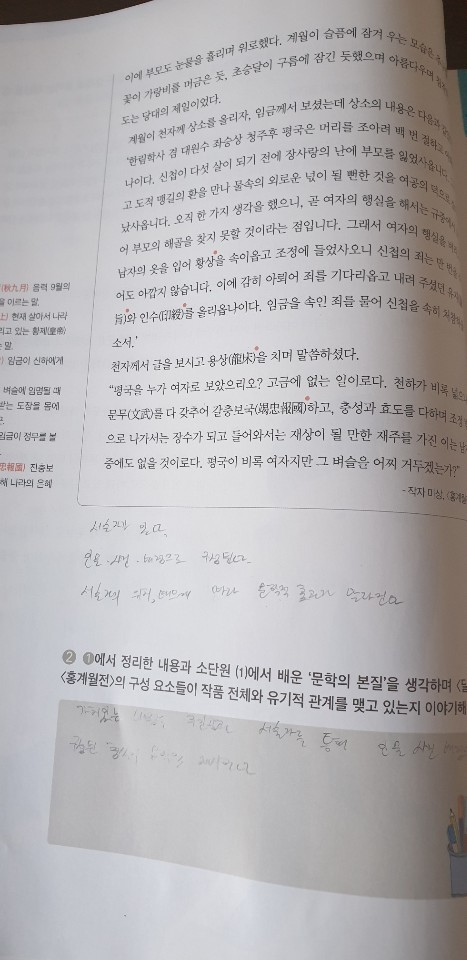 이에 부모도 눈물을 흘리며 위로했다. 계월이 슬픔에 잠겨 우는 모습은
꽃이 가랑비를 머금은 듯, 초승달이 구름에 잠긴 듯했으며 아름다우며
도는 당대의 제일이었다.
계월이 천자께 상소를 올리자, 임금께서 보셨는데 상소의 내용은 다음과
'한림학사 겸 대원수 좌승상 청주후 평국은 머리를 조아려 백 번 절하고
나이다. 신첩이 다섯 살이 되기 전에 장사랑의 난에 부모를 잃었사옵니다.
고 도적 맹길의 환을 만나 물속의 외로운 넋이 될 뻔한 것을 여공의 덕으로
났사옵니다. 오직 한 가지 생각을 했으니, 곧 여자의 행실을 해서는
어 부모의 해골을 찾지 못할 것이라는 점입니다. 그래서 여자의 행실을
남자의 옷을 입어 황상을 속이옵고 조정에 들었사오니 신첩의 죄는 만 번
어도 아깝지 않습니다. 이에 감히 아뢰어 죄를 기다리옵고 내려 주셨던
旨)와 인수(印綬)를 올리옵나이다. 임금을 속인 죄를 물어 신첩을 속히
소서.'
천자께서 글을 보시고 용상(龍床)을 치며 말씀하셨다.
"평국을 누가 여자로 보았으리오? 고금에 없는 일이로다. 천하가 비록
문무(文武)를 다 갖추어 갈충보국(竭忠報國)하고, 충성과 효도를 다하며
으로 나가서는 장수가 되고 들어와서는 재상이 될 만한 재주를 가진 이는
중에도 없을 것이로다. 평국이 비록 여자지만 그 벼슬을 어찌 거두겠는가?"
- 작자 미상, 〈홍계월
(秋九月) 음력 9월의
을 이르는 말.
上) 현재 살아서 나라
리고 있는 황제(皇帝)
는 말.
임금이 신하에게
벼슬에 임명될 때
받는 도장을 몸에
임금이 정무를 볼
忠報國) 진충보
해 나라의 은혜
인물·사건·배경으로 구성된다.
따라
달라진다
❷ ❶에서 정리한 내용과 소단원 (1)에서 배운 '문학의 본질'을 생각하며
〈홍계월전〉의 구성 요소들이 작품 전체와 유기적 관계를 맺고 있는지 이야기해
서술자를 통해 인물 사건